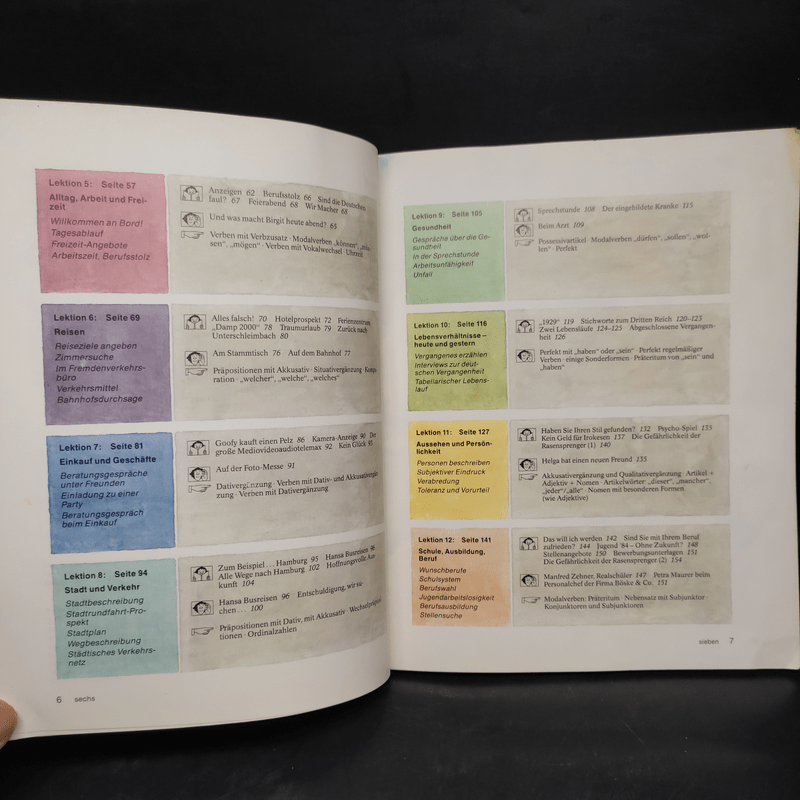 Lektion 5: Seite 57
Alltag, Arbeit und Frei-
zeit
Willkommen an Bord!
Tagesablauf
Freizeit-Angebote
Arbeitszeit, Berufsstolz
Anzeigen 62 Berufsstolz 66 Sind die Deutschen
faul? 67 Feierabend 68 Wir Macher 68
Und was macht Birgit heute abend? 65
Verben mit Verbzusatz · Modalverben „können“, „müs-
sen“, „mögen“ · Verben mit Vokalwechsel · Uhrzeit
Lektion 6: Seite 69
Reisen
Reiseziele angeben
Zimmersuche
Im Fremdenverkehrs-
büro
Verkehrsmittel
Bahnhofsdurchsage
Alles falsch! 70 Hotelprospekt 72 Ferienzentrum
„Damp 2000“ 78 Traumurlaub 79 Zurück nach
Unterschleimbach 80
Am Stammtisch 76 Auf dem Bahnhof 77
Präpositionen mit Akkusativ · Situativergänzung · Kompa-
ration · „welcher“, „welche“, „welches“
Lektion 7: Seite 81
Einkauf und Geschäfte
Beratungsgespräche
unter Freunden
Einladung zu einer
Party
Beratungsgespräch
beim Einkauf
Goofy kauft einen Pelz 86 Kamera-Anzeige 90 Der
große Mediovideoaudiotelemax 92 Kein Glück 93
Auf der Foto-Messe 91
Dativergänzung · Verben mit Dativ- und Akkusativergän-
zung · Verben mit Dativergänzung
Lektion 8: Seite 94
Stadt und Verkehr
Stadtbeschreibung
Stadtrundfahrt-Pro-
spekt
Stadtplan
Wegbeschreibung
Städtisches Verkehrs-
netz
Zum Beispiel ... Hamburg 95 Hansa Busreisen 96
Alle Wege nach Hamburg 102 Hoffnungsvolle Aus-
kunft 104
Hansa Busreisen 96 Entschuldigung, wir su-
chen ... 100
Präpositionen mit Dativ, mit Akkusativ · Wechselpräposi-
tionen · Ordinalzahlen
6 sechs
Lektion 9: Seite 105
Gesundheit
Gespräche über die Ge-
sundheit
In der Sprechstunde
Arbeitsunfähigkeit
Unfall
Sprechstunde 108 Der eingebildete Kranke 115
Beim Arzt 109
Possessivartikel · Modalverben „dürfen“, „sollen“, „wol-
len“ · Perfekt
Lektion 10: Seite 116
Lebensverhältnisse –
heute und gestern
Vergangenes erzählen
Interviews zur deut-
schen Vergangenheit
Tabellarischer Lebens-
lauf
„1929“ 119 Stichworte zum Dritten Reich 120–123
Zwei Lebensläufe 124–125 Abgeschlossene Vergangen-
heit 126
Perfekt mit „haben“ oder „sein“ · Perfekt regelmäßiger
Verben · einige Sonderformen · Präteritum von „sein“ und
„haben“
Lektion 11: Seite 127
Aussehen und Persön-
lichkeit
Personen beschreiben
Subjektiver Eindruck
Verabredung
Toleranz und Vorurteil
Haben Sie Ihren Stil gefunden? 132 Psycho-Spiel 133
Kein Geld für Irokesen 137 Die Gefährlichkeit der
Rasensprenger (1) 140
Helga hat einen neuen Freund 135
Akkusativergänzung und Qualitativergänzung · Artikel +
Adjektiv + Nomen · Artikelwörter: „dieser“, „mancher“,
„jeder“/„alle“ · Nomen mit besonderen Formen
(wie Adjektive)
Lektion 12: Seite 141
Schule, Ausbildung,
Beruf
Wunschberufe
Schulsystem
Berufswahl
Jugendarbeitslosigkeit
Berufsausbildung
Stellensuche
Das will ich werden 142 Sind Sie mit Ihrem Beruf
zufrieden? 144 Jugend '84 – Ohne Zukunft? 148
Stellenangebote 150 Bewerbungsunterlagen 151
Die Gefährlichkeit der Rasensprenger (2) 154
Manfred Zehner, Realschüler 147 Petra Maurer beim
Personalchef der Firma Böske & Co. 151
Modalverben: Präteritum · Nebensatz mit Subjunktor ·
Konjunktoren und Subjunktoren
sieben 7